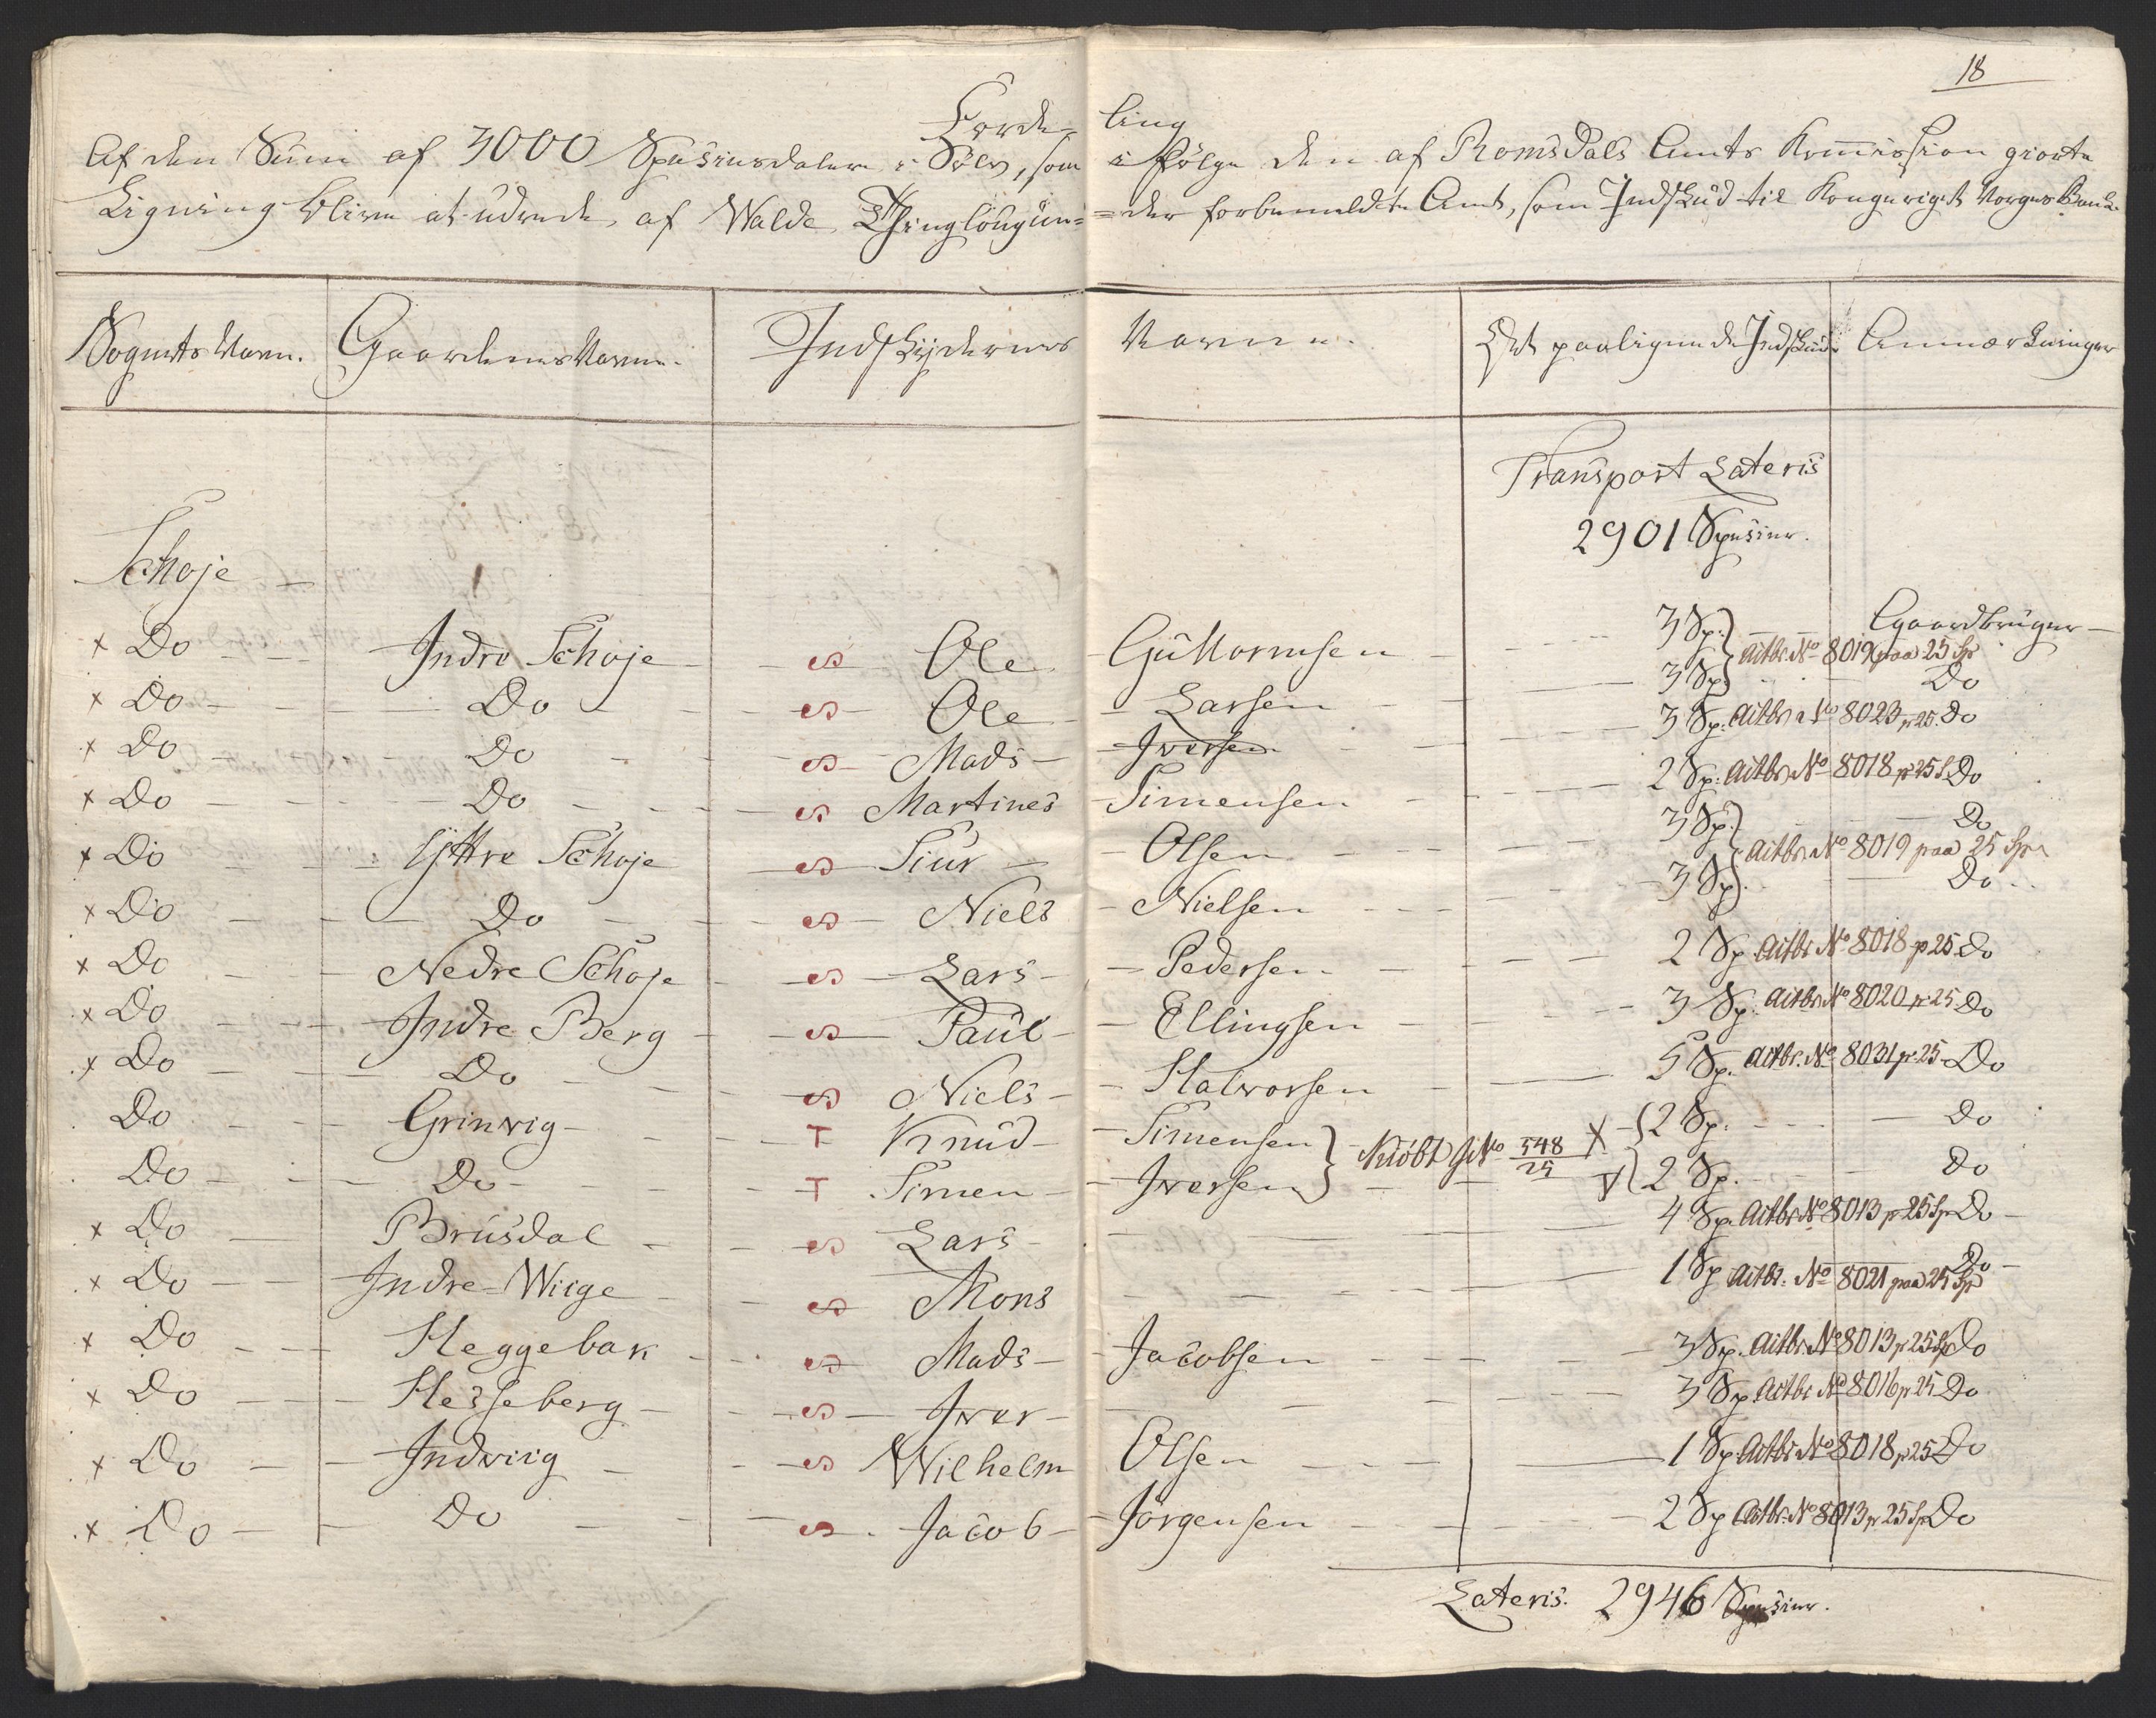 18
Fordeling
Af den Sum af 3000 Speciesdaler i Sölv, som i Fölge den af Romsdals Amts Kommission giorte
Ligning bliver at udrede, af Walde Thinglaug ün=der forbemeldte Amt, som Indskud til Kongeriget Norges Bank
Sognets Navn. Gaardenes Navne. Indskydernes Navne. Det paalignende Indskud Anmærkninger
Transport Lateris
2901 Species.
Schoje
x Do Indre Schoje S Ole Guttormsen 3 Sp: Gaardbruger
Aitbr. No 8019 paa 25 Sp
x Do Do S Ole Larsen 3 Sp: Do
x Do Do S Mads Iversen 3 Sp: Aitbr No 8023 p 25 Do
x Do Do S Martines Simensen 2 Sp: Aitbr No 8018 p 25 S Do
x Do Yttre Schoje S Siur Olsen 3 Sp. Do
Aitbr. No 8019 paa 25 Sp
x Do Do S Niels Nielsen 3 Sp. Do
x Do Nedre Schoje S Lars Pedersen 2 Sp. Aitbr No 8018 p 25 Do
x Do Indre Berg S Paul Ellingsen 3 Sp. Aitbr No 8020 p 25 Do
x Do Do S Niels Halvorsen 5 Sp. Aitbr. No 8031 p 25 Do
Do Grinvig T Knud Simensen X 2 Sp. Do
No 548/25
Do Do T Simen Iversen 2 Sp. Do
x Do Brusdal S Lars 4 Sp. Aitbr No 8013 p 25 Sp Do
x Do Indre-Wiige S Mons 1 Sp Do
Aitbr. No 8021 paa 25 Sp
x Do Heggebak S Mads Jacobsen 3 Sp. Aitbr. No 8013 p 25 Sp Do
x Do Hesseberg S Iver 3 Sp. Aitbr No 8016 p 25 Do
x Do Indviig S Wilhelm Olsen 1 Sp. Aitbr No 8018 p 25 Do
x Do Do S Jacob Jörgensen 2 Sp Aitbr. No 8013 p 25 Sp Do
Lateris. 2946 Species.